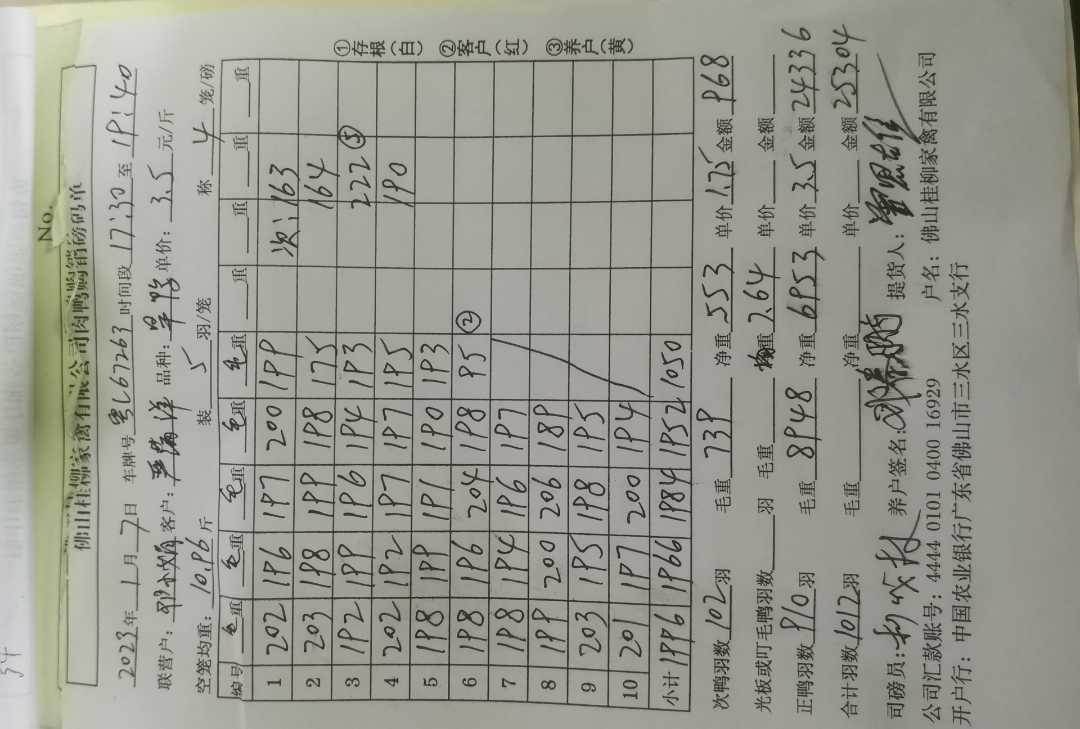 No.
佛山桂柳家禽有限公司肉鸭购销磅码单
2023年 1月 7日 车牌号 粤L67263 时间段 17:30 至 19:40
联营户: 客户: 品种: 单价: 3.5 元/斤
空笼均重: 10.96 斤 装 5 羽/笼 称 4 笼/磅
编号 毛重 毛重 毛重 毛重 毛重 重 重 重 重
1 202 196 197 200 199 次:163
2 203 198 199 198 175 164
3 192 199 196 194 193 222⑤
4 202 192 197 197 195 190
5 198 199 191 190 193
6 198 196 204 198 95②
7 198 194 196 197
8 199 200 206 189
9 203 195 198 195
10 201 197 200 194
小计 1996 1966 1984 1952 1050
次鸭羽数 102 羽 毛重 739 净重 553 单价 1.75 金额 968
光板或叮毛鸭羽数 羽 毛重 均重 7.64 单价 金额
正鸭羽数 910 羽 毛重 8948 净重 6953 单价 3.5 金额 24336
合计羽数 1012 羽 毛重 净重 单价 金额 25304
司磅员: 养户签名: 提货人:
公司汇款账号: 4444 0101 0400 16929 户名: 佛山桂柳家禽有限公司
开户行: 中国农业银行广东省佛山市三水区三水支行
①存根(白) ②客户(红) ③养户(黄)
54